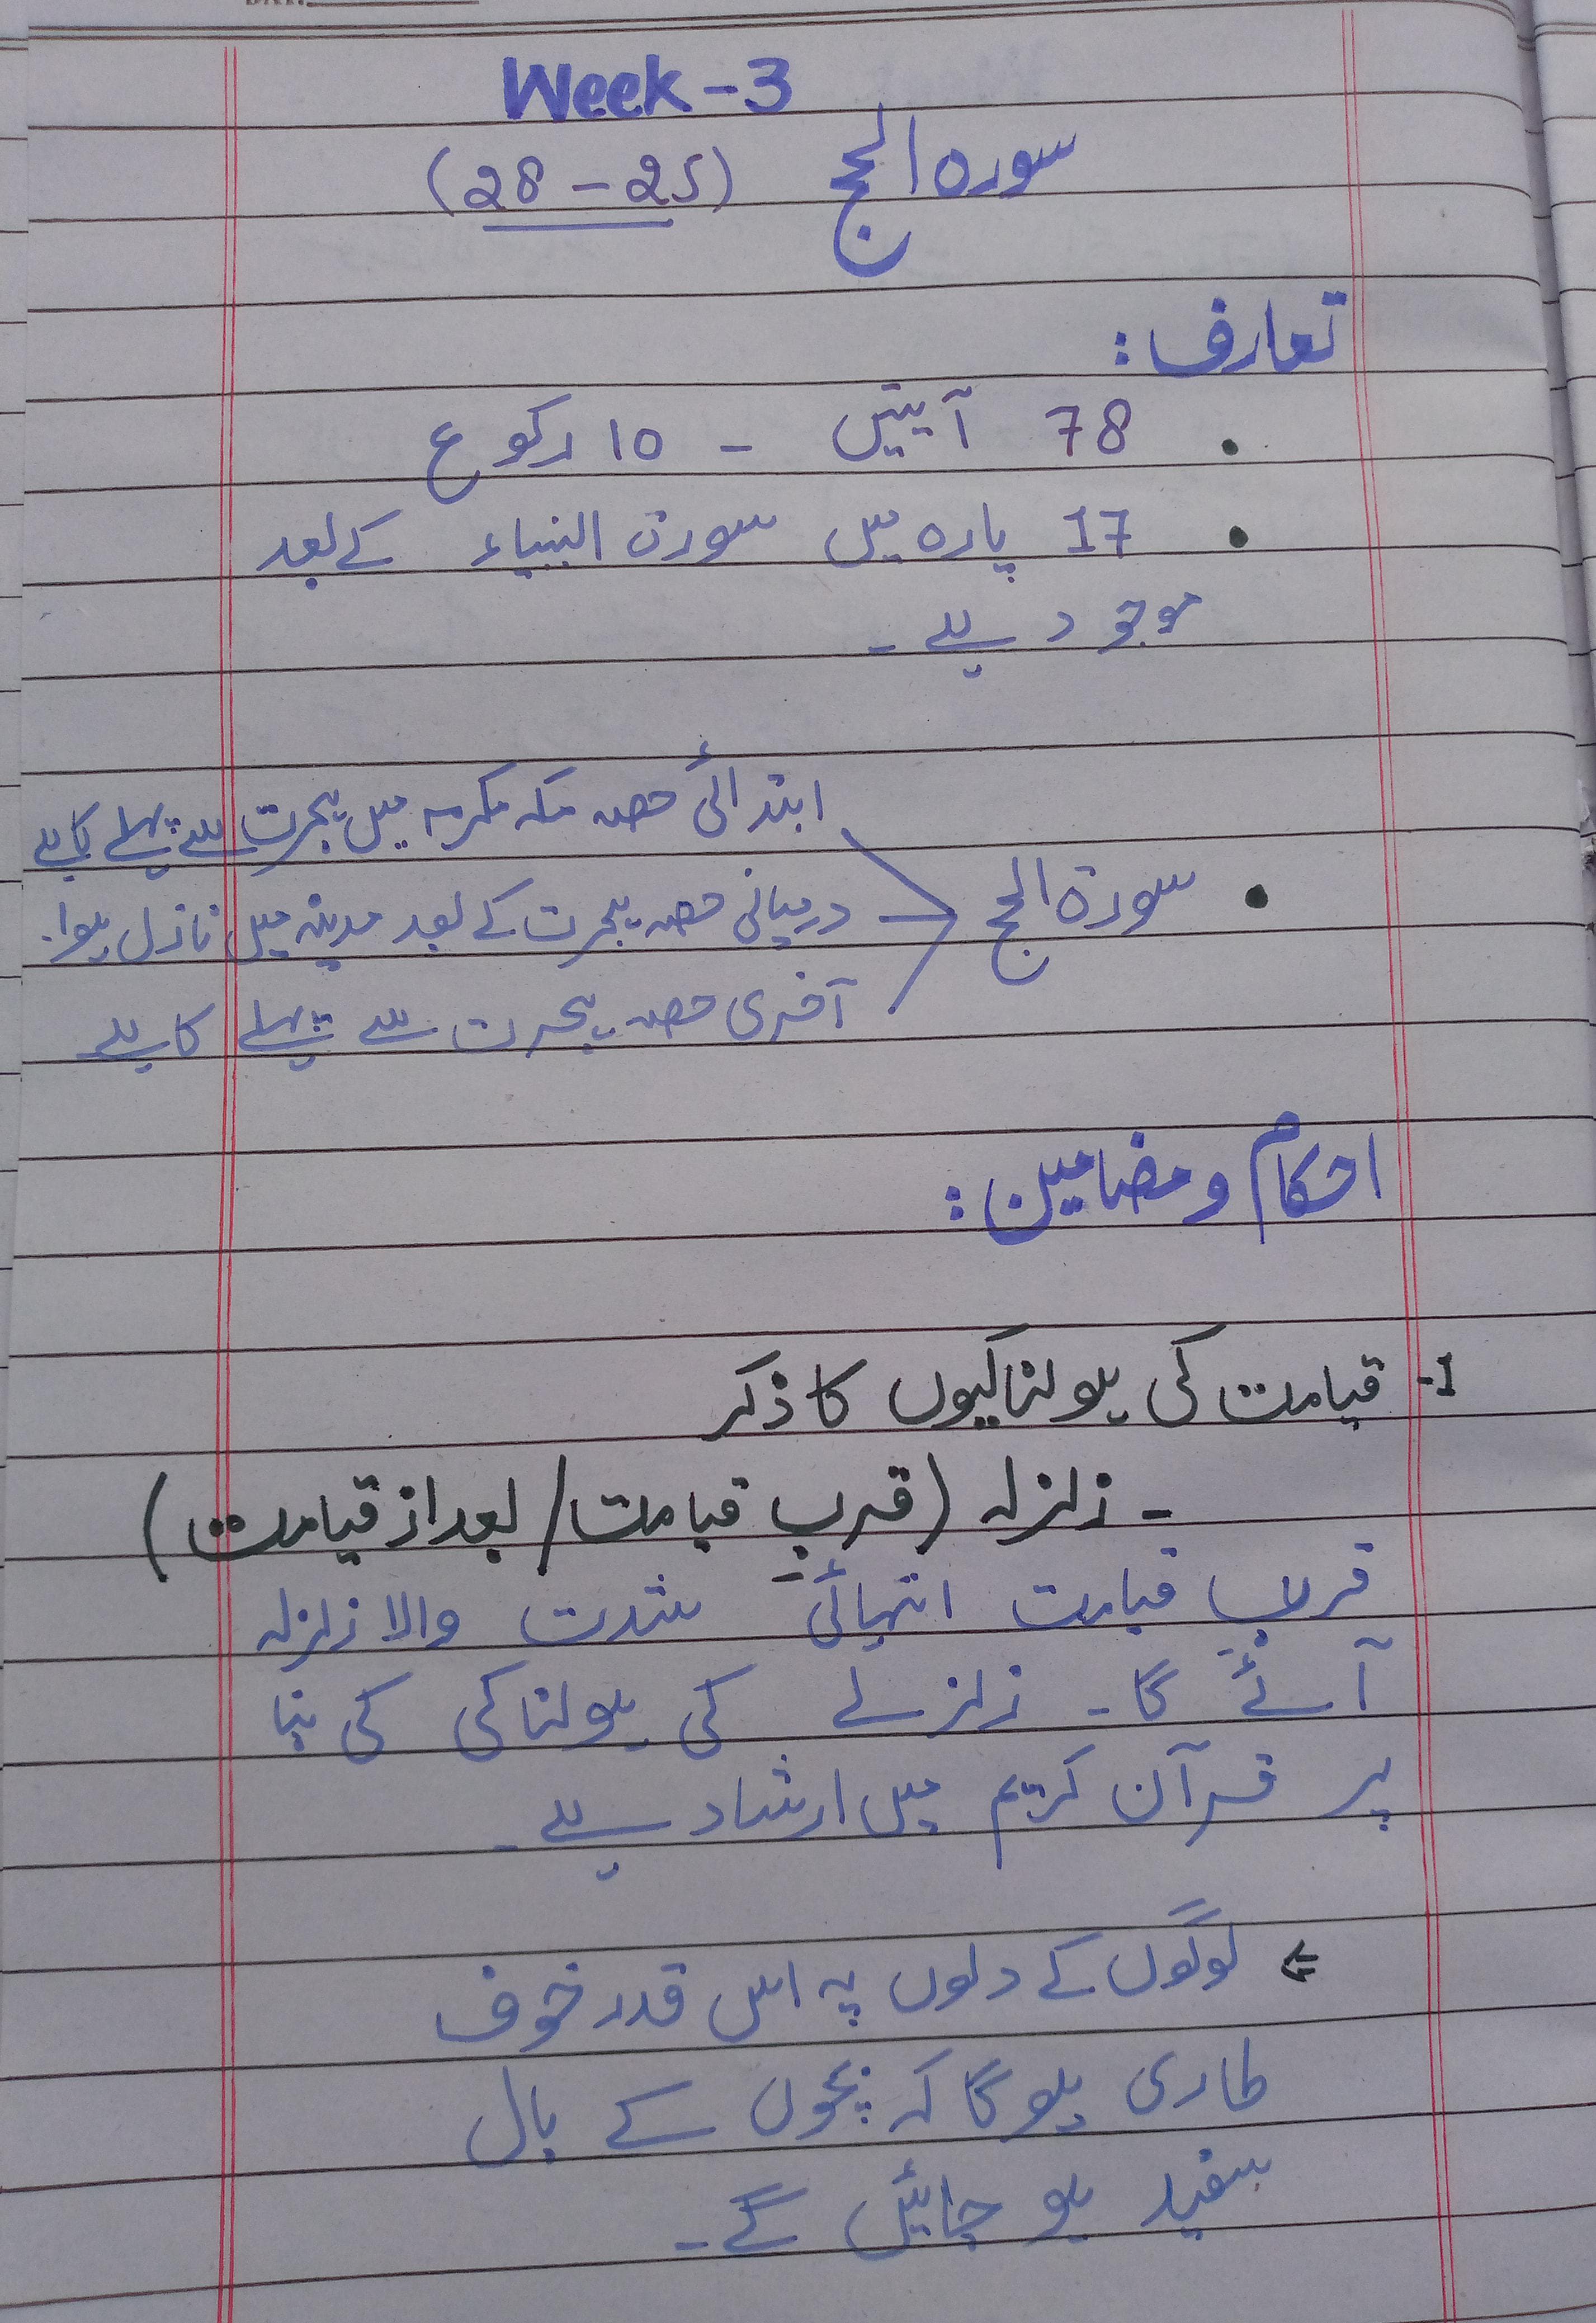 Week-3
سورہ الحج (28 - 25)
تعارف:
• 78 آیتیں - 10 رکوع
• 17 پارہ میں سورۃ النبیاء کے بعد
موجود ہے۔
ابتدائی حصہ مکہ مکرمہ میں ہجرت سے پہلے کا ہے
• سورۃ الحج
درمیانی حصہ ہجرت کے بعد مدینہ میں نازل ہوا.
آخری حصہ ہجرت سے پہلے کا ہے
احکام و مضامین:
1- قیامت کی ہولناکیوں کا ذکر
- زلزلہ (قربِ قیامت / بعد از قیامت)
قربِ قیامت انتہائی شدت والا زلزلہ
آئے گا۔ زلزلے کی ہولناکی کی بنا
پر قرآن کریم میں ارشاد ہے۔
⇐ لوگوں کے دلوں پہ اس قدر خوف
طاری ہو گا کہ بچوں کے بال
سفید ہو جائیں گے۔